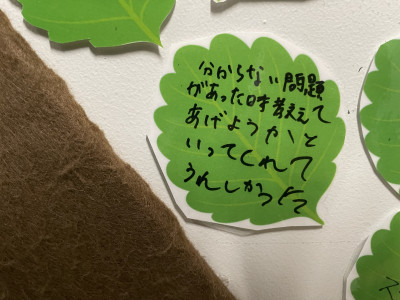 分からない問題
があった時教えて
あげようか、と
いってくれて
うれしかったです